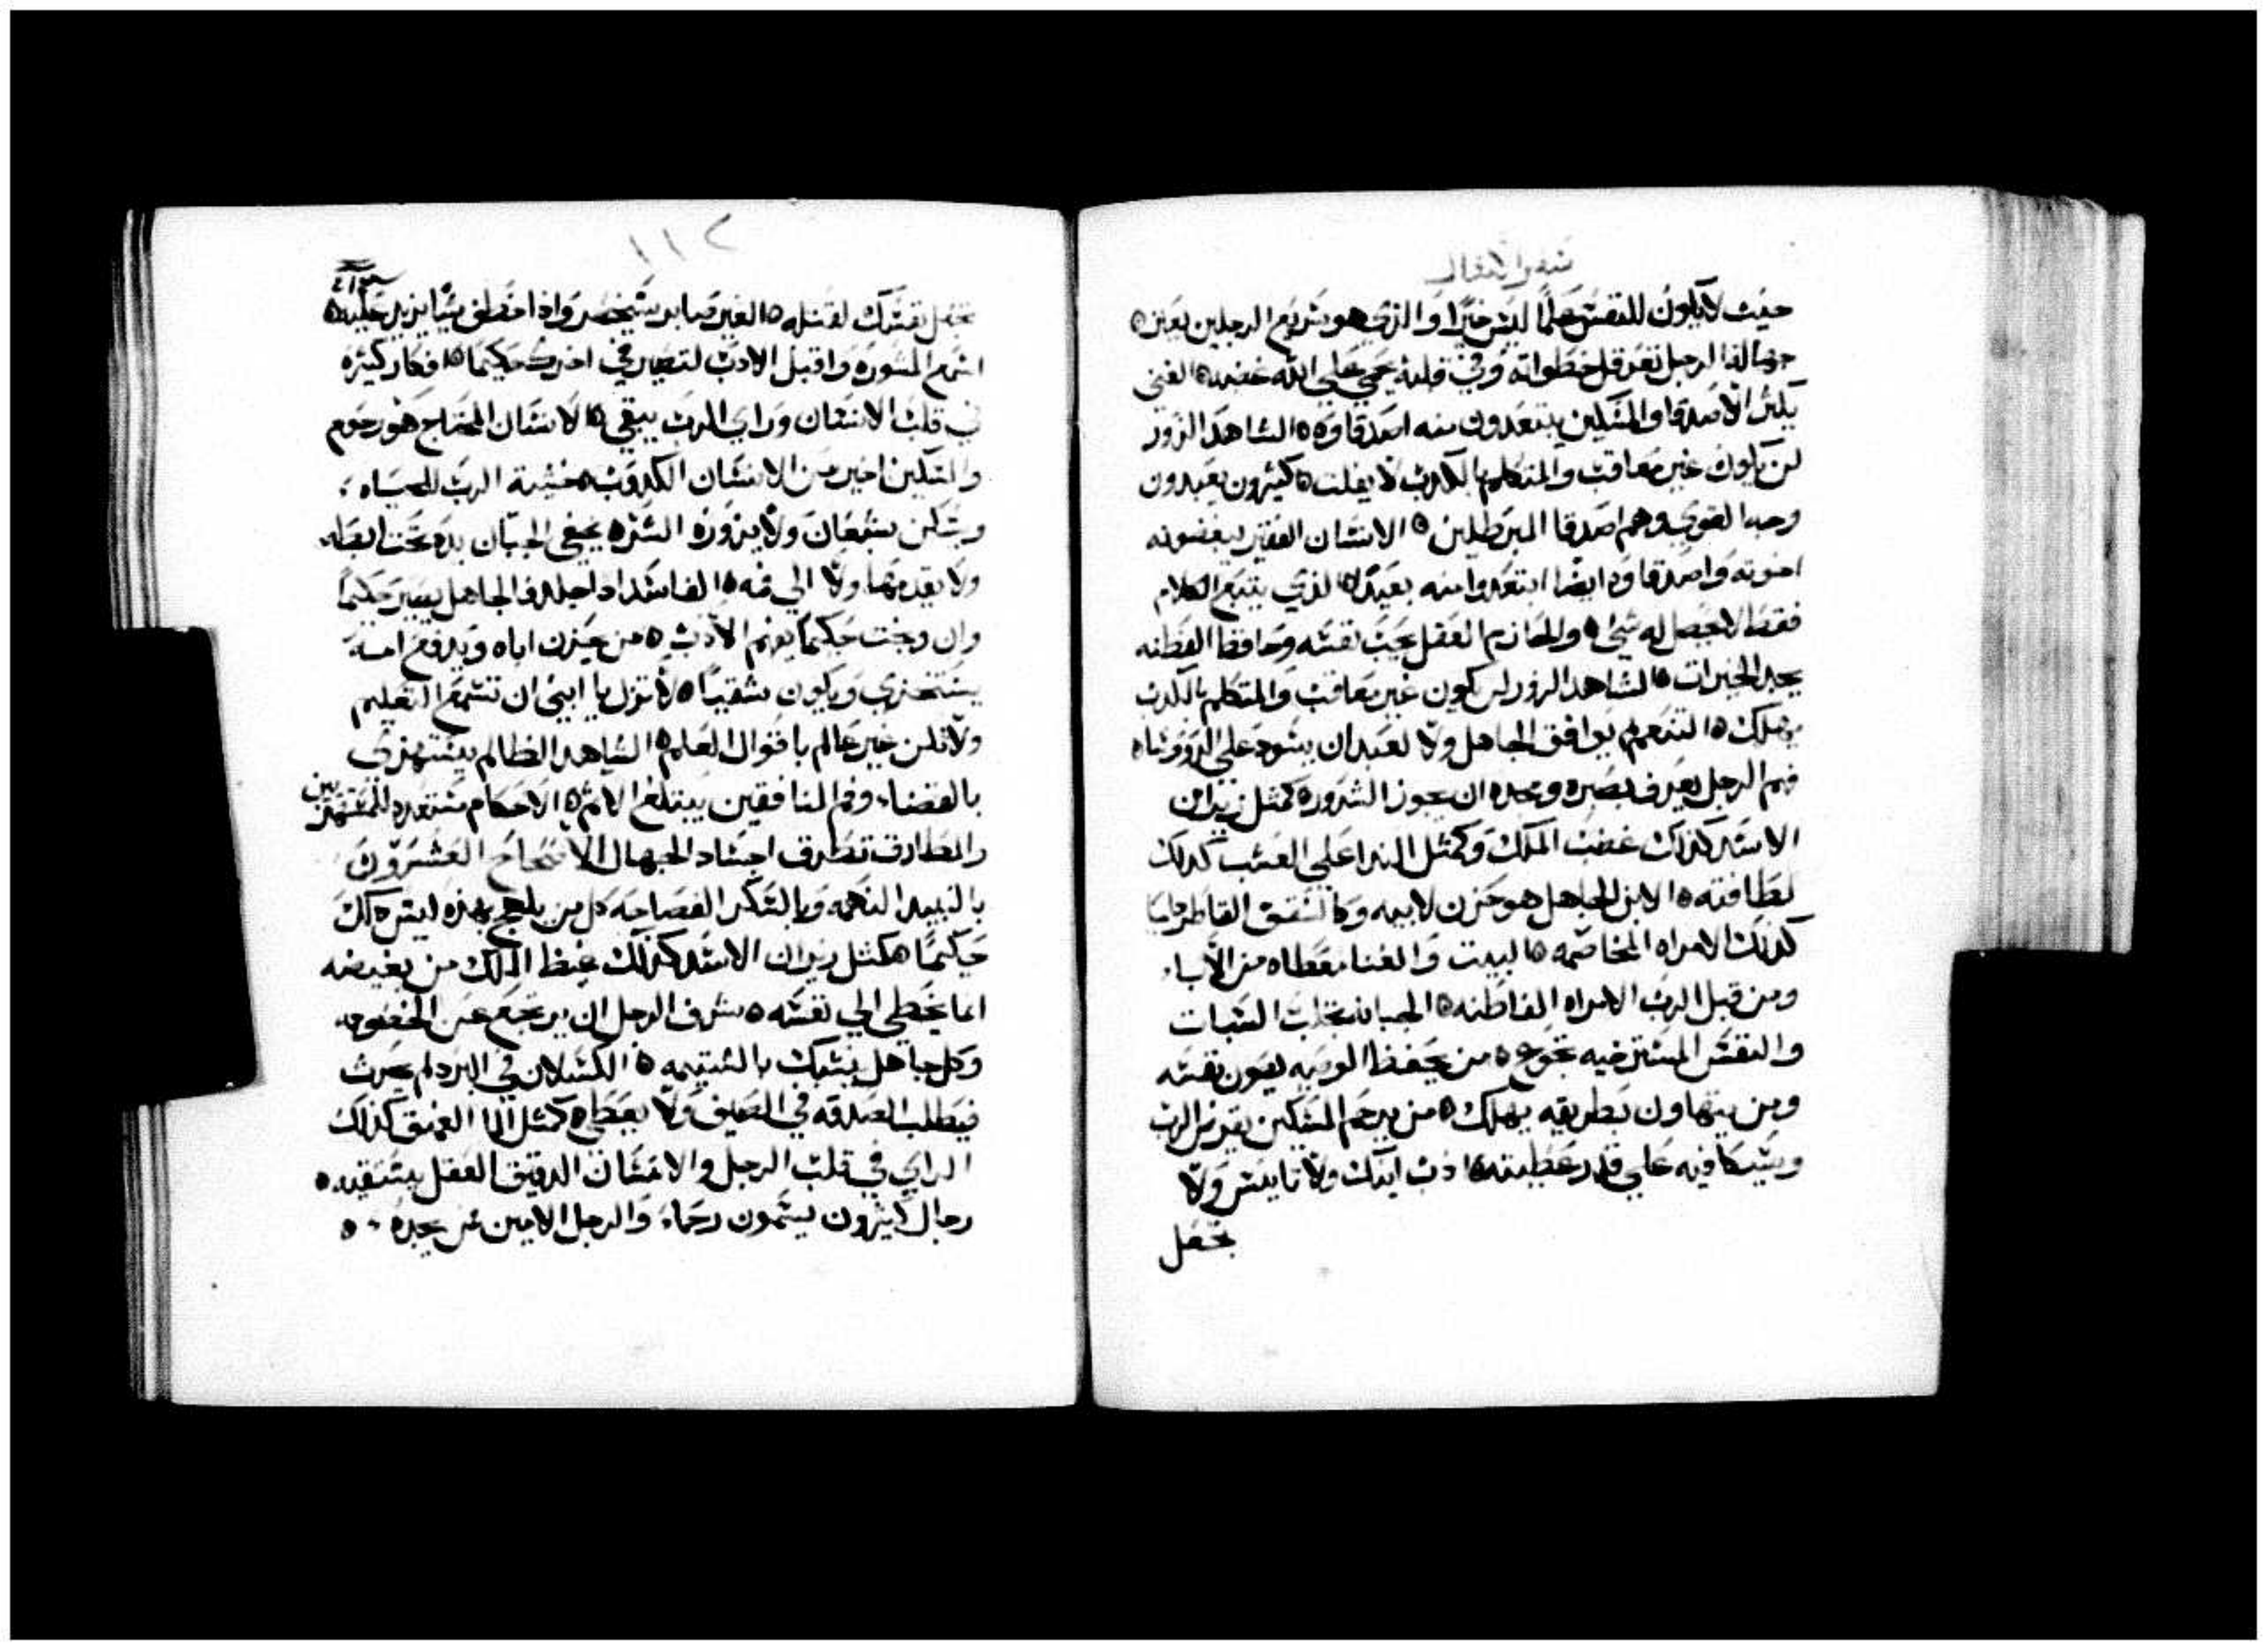 سفر الامثال
حيث لا يكون للنفس علماً ليس خيراً والذي هو سريع الرجلين يعتر ه
جهالة الرجل تعرقل خطواته وفي قلبه يحمي علي الله غضبه ه الغني
يكثر الاصدقا والمسكين يبتعدون منه اصدقاوه ه الشاهد الزور
لن يكون غير معاقب والمتكلم بالكدب لا يفلت ه كثيرون يعبدون
وجه القوي وهم اصدقا المبرطلين ه الانسان الفقير يبغضونه
اخوته واصدقاوه ايضا ابتعدوا منه بعيداً ه الذي يتبع الكلام
فقط لا يحصل له شي ه والحازم العقل يحب نفسه وحافظ الفطنه
يجد الخيرات ه الشاهد الزور لن يكون غير معاقب والمتكلم بالكدب
يهلك ه التنعم لم يوافق الجاهل ولا لعبد ان يسود علي الروسا ه
فهم الرجل يعرف بصبره ومجده ان يجوز الشرور ه كمثل زيران
الاسد كذلك غضب الملك وكمثل الندا علي العشب كذلك
لطافته ه الابن الجاهل هو حزن لابيه وكالسقف القاطر دايما
كذلك الامراه المخاصمه ه البيت والغنا معطاه من الابا،
ومن قبل الرب الامراه الفاطنه ه الجبانه تجلب السبات
والنفس المسترخيه تجوع ه من يحفظ الوصيه يصون نفسه
ومن يتهاون بطريقه يهلك ه من يرحم المسكين يقرض الرب
ويكافيه علي قدر عطيته ه ادب ابنك ولا تاييس ولا
تجعل
١١٢
تجعل نفسك لقتله ه الغير صابر سيخسر واذا خطف شيا يزيد عليه ه
اسمع المشوره واقبل الادب لتصير في اخرتك حكيما ه افكار كثيره
في قلب الانسان وراي الرب يبقي ه الانسان المحتاج هو رحوم
والمسكين اخير من الانسان الكدوب ه خشية الرب للحياه،
ويسكن شبعان ولا يزوره الشر ه يخفي الجبان يده تحت ابطه
ولا يقدمها ولا الي فمه ه الفاسد اذا جلد فالجاهل يصير حكيماً
وان وبخت حكيماً يفهم الادب ه من يحزن اباه ويدفع امه
يستخزي ويكون شقياً ه لا تزل يا ابني ان تسمع التعليم
ولا تكن غير عالم باقوال العلم ه الشاهد الظالم يستهزي
بالقضا، وفم المنافقين يبتلع الاثم ه الاحكام مستعده للمستهزيين
والمطارق تطرق اجساد الجهال الاصحاح العشرون
بالنبيد النهمه وبالسكر الفصاحه كل من يلهج بهذه ليس ذلك
حكيما ه كمثل زيران الاسد كذلك غيظ الملك من يغيضه
انما يخطي الي نفسه ه شرف الرجل ان يرتجع عن الخصومه
وكل جاهل يشبك بالشتيمه ه الكسلان في البرد لم يحرث
فيطلب الصدقه في الصيف ولا يعطي ه كمثل الما العميق كذلك
الراي في قلب الرجل والانسان الدقيق العقل يستقيه ه
رجال كثيرون يسمون رحما، والرجل الامين من يجده ه